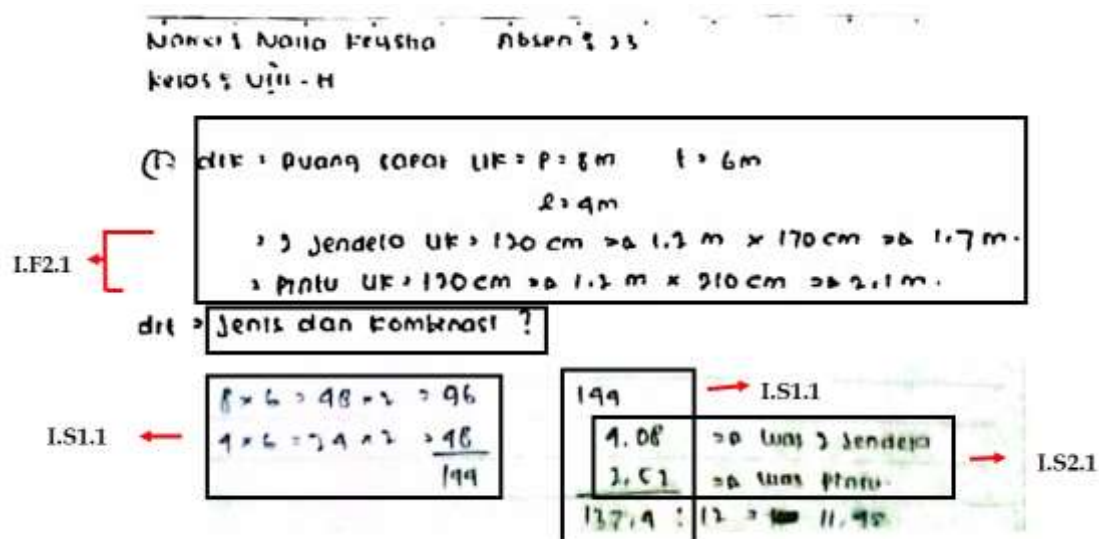 Nama : Naila Keysha Absen : 23
Kelas : VIII - H
① dik : Ruang rapat UK : P = 8 m t = 6 m
l = 4 m
: 2 Jendela UK : 120 cm => 1.2 m × 170 cm => 1.7 m.
I.F2.1
: Pintu UK : 120 cm => 1.2 m × 210 cm => 2.1 m.
dit : Jenis dan kombinasi ?
8 × 6 = 48 × 2 = 96
I.S1.1
4 × 6 = 24 × 2 = 48
144
144
I.S1.1
4.08 => luas 2 Jendela
I.S2.1
2.52 => luas Pintu
137,4 : 12 = 11.45